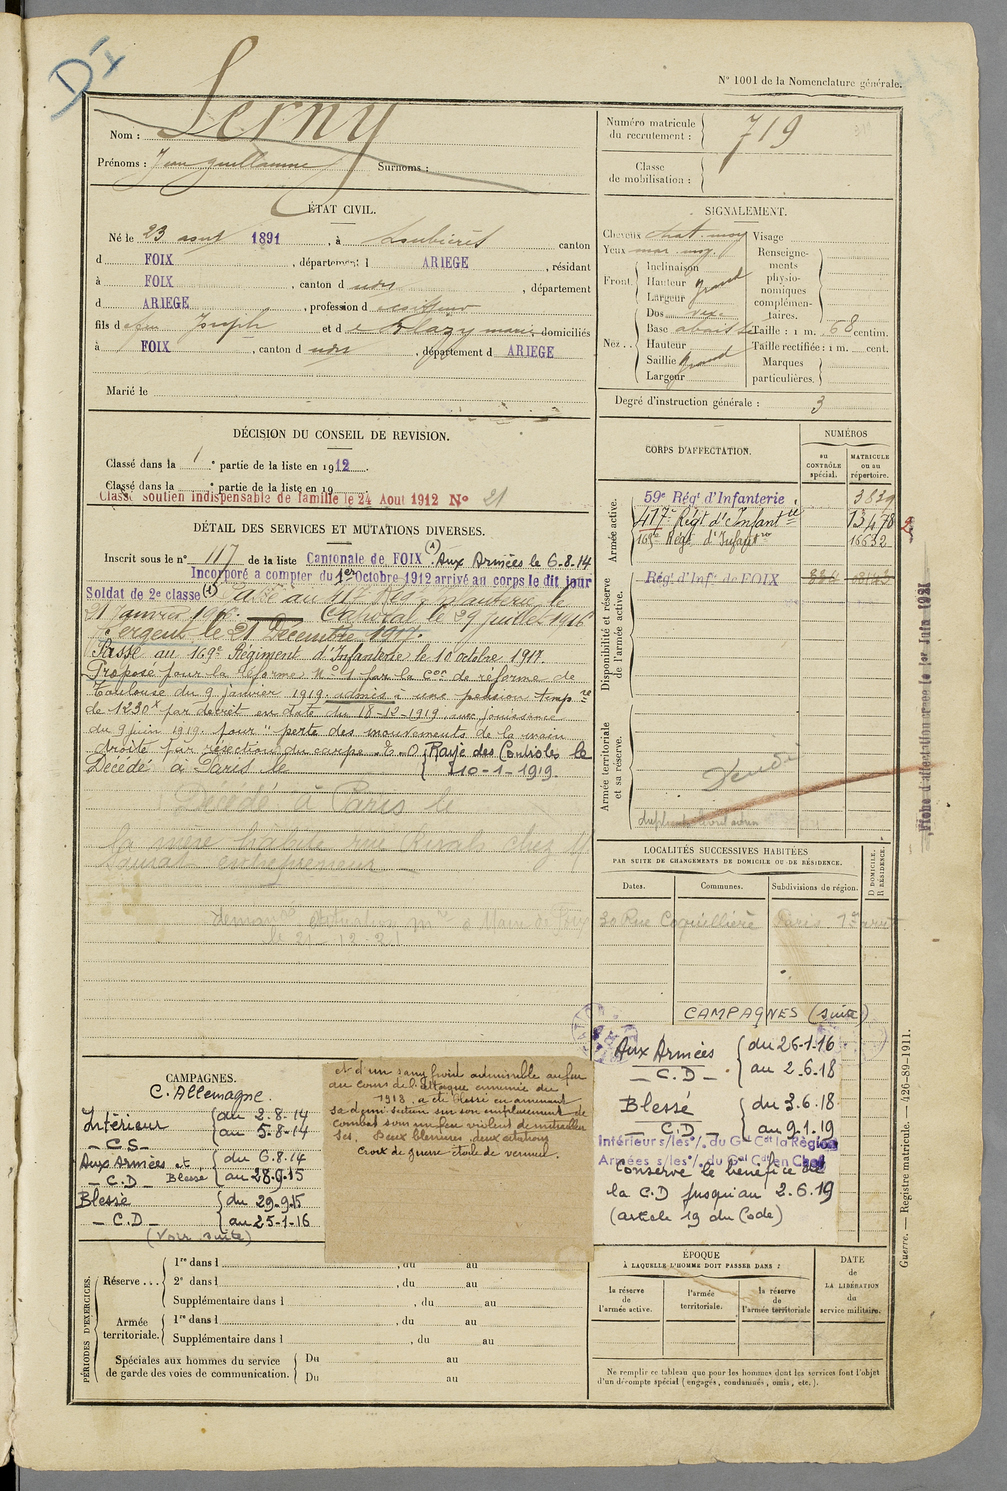 D'I
N° 1001 de la Nomenclature générale.
Nom : Serny
Prénoms : Jean Guillaume Surnoms :
Numéro matricule du recrutement : 719
Classe de mobilisation :
ÉTAT CIVIL.
Né le 23 aout 1891, à Loubières canton
d FOIX, département d ARIEGE, résidant
à FOIX, canton d udos, département
d ARIEGE, profession d coiffeur
fils d feu Joseph et d e Blazy marie, domiciliés
à FOIX, canton d udos, département d ARIEGE
Marié le
SIGNALEMENT.
Cheveux chat. moy
Yeux mar. moy.
Front. Inclinaison
Hauteur grand
Largeur
Nez.. Dos vexe
Base abaissé
Hauteur
Saillie grand
Largeur
Visage
Renseignements physionomiques complémentaires.
Taille : 1 m. 68 centim.
Taille rectifiée : 1 m. cent.
Marques particulières.
Degré d'instruction générale : 3
DÉCISION DU CONSEIL DE REVISION.
Classé dans la 1e partie de la liste en 1912.
Classé dans la e partie de la liste en 19
Classé soutien indispensable de famille le 24 Aout 1912 N° 21
DÉTAIL DES SERVICES ET MUTATIONS DIVERSES.
Inscrit sous le n° 117 de la liste Cantonale de FOIX (1) Aux Armées le 6.8.14
Incorporé a compter du 1er Octobre 1912 arrivé au corps le dit jour
Soldat de 2e classe (1) Passé au 417e Rég. Infanterie le
21 Janvier 1916. Caporal le 29 juillet 1916
Sergent le 21 Décembre 1917.
Passé au 169e Régiment d'Infanterie le 10 octobre 1917.
Proposé pour la réforme N° 1 par la Con de réforme de
Toulouse du 9 janvier 1919. admis à une pension tempre
de 1230x par décret en date du 18-12-1919, avec jouissance
du 9 juin 1919. pour " perte des mouvements de la main
droite par résection du carpe. Rayé des Controles le
Décédé à Paris le 10-1-1919.
Décédé à Paris le
Sa mère habite rue Rivals chez M
Saurat entrepreneur
le 21-12-21
CORPS D'AFFECTATION.
NUMÉROS
au CONTRÔLE spécial.
MATRICULE ou au répertoire.
Armée active.
59e Régt d'Infanterie 3829
417e Régt d'Infantie 13478
169e Régt d'Infantie 16632
Disponibilité et réserve de l'armée active.
Régt d'Infie de FOIX 884
Armée territoriale et sa réserve.
Fiche d'affectation
LOCALITÉS SUCCESSIVES HABITÉES
PAR SUITE DE CHANGEMENTS DE DOMICILE OU DE RÉSIDENCE.
Dates. Communes. Subdivisions de région.
D DOMICILE, R RÉSIDENCE.
30 Rue Coquillière Paris 1er arrt
CAMPAGNES (suite)
Aux Armées du 26-1-16
— C.D — au 2-6-18
Blessé du 3-6-18
— C.D — au 9-1-19
Intérieur s/les o/. du Gal Cdt la Région
Armées s/les o/. du Gal Cdt en Chef
Conserve le bénéfice de
la C.D jusqu'au 2.6.19
(article 19 du Code)
CAMPAGNES.
C. Allemagne.
Intérieur du 2-8-14
— C.S — au 5-8-14
Aux Armées et du 6.8.14
— C.D — Blessé au 28.9.15
Blessé du 29.9.15
— C.D — au 25-1-16
(Voir suite)
et d'un sang froid admirable au feu
au cours de l'attaque ennemie du
1918. a été blessé en amenant
sa demi section sur son emplacement de
combat sous un feu violent de mitrailleu
ses. Deux blessures, deux citations
Croix de guerre étoile de vermeil.
PÉRIODES D'EXERCICES.
Réserve... 1re dans l , du au
2e dans l , du au
Supplémentaire dans l , du au
Armée territoriale. 1re dans l , du au
Supplémentaire dans l , du au
Spéciales aux hommes du service de garde des voies de communication. Du au
Du au
ÉPOQUE
À LAQUELLE L'HOMME DOIT PASSER DANS :
la réserve de l'armée active.
l'armée territoriale.
la réserve de l'armée territoriale
DATE de LA LIBÉRATION du service militaire.
Ne remplir ce tableau que pour les hommes dont les services font l'objet
d'un décompte spécial (engagés, condamnés, omis, etc.).
Guerre. — Registre matricule. — 426-89-1911.